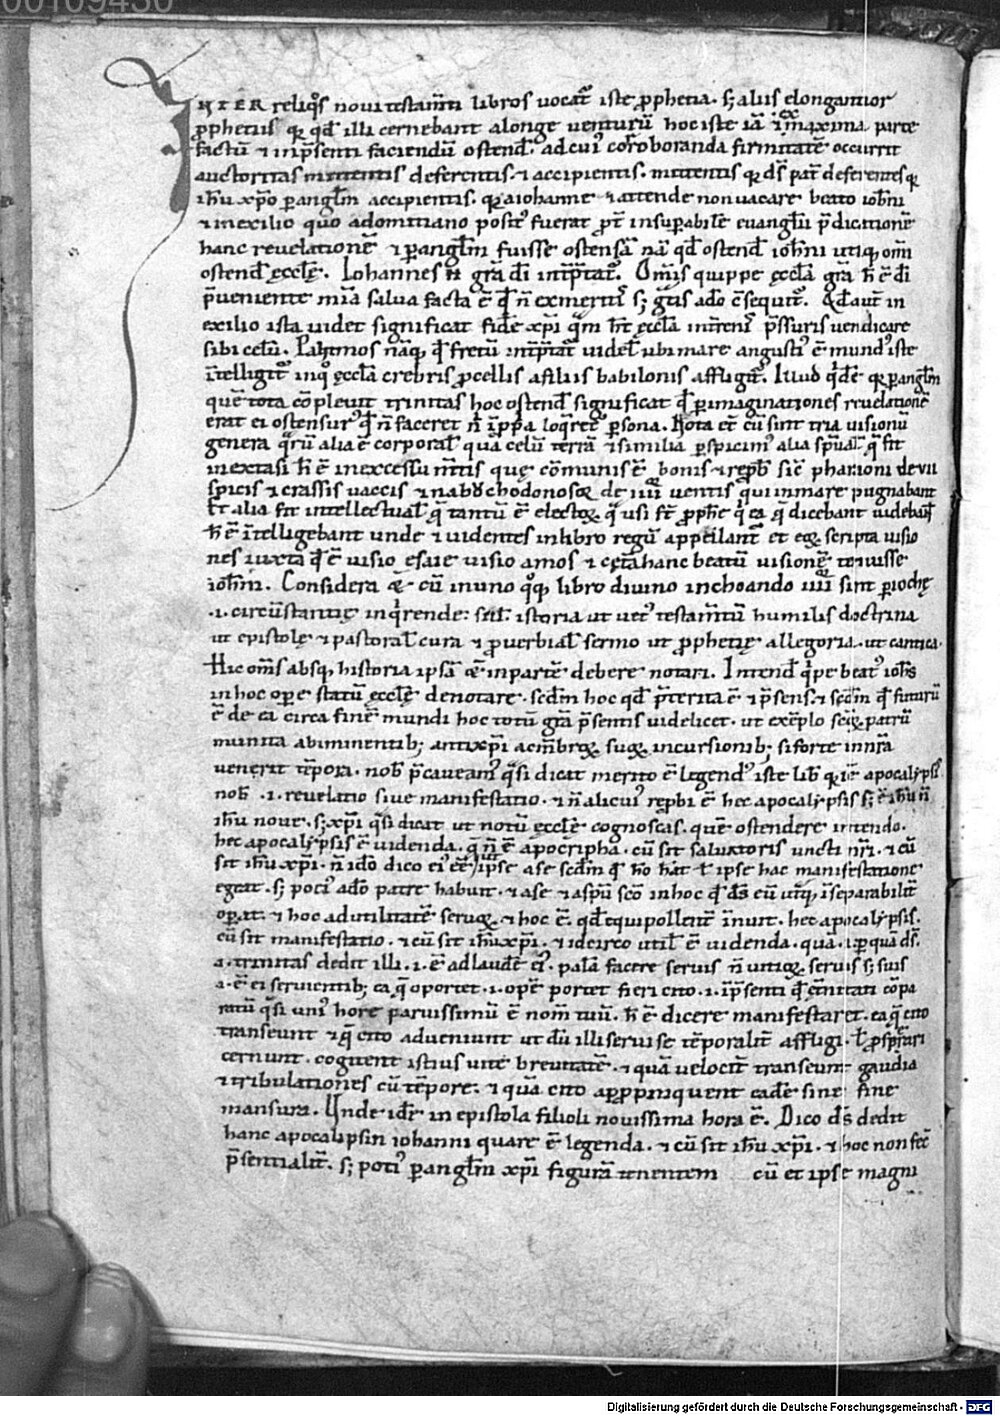 00109430
INTER reliq̄s noui testam̄ti libros uocat̄ iste ꝓphetia. s; aliis elongantior
ꝓphetiis qꝛ qđ illi cernebant a longe uenturū hoc iste iā ī maxima parte
factū ⁊ in p̄senti faciendū ostend̄. ad cui᷒ corroboranda firmitatē occurrit
auctoritas mittentis deferentis ⁊ accipientis. mittentis qꝛ ds̄ pat̄ deferentis qꝛ
ih̄u xp̄o ꝑ angl̄m accipientis. qꝛ a iohanne ⁊ attende non uacare beato ioh̄ni
⁊ in exilio quo a domitiano posit᷒ fuerat ꝓt̄ insuꝑabilē euangl̄ii p̄dicationē
hanc reuelationē ⁊ ꝑ angl̄m fuisse ostensā nā qđ ostend̄ ioh̄ni utiqꝫ om̄i
ostend̄ ęccl̄ę. Iohannes n̄ gr̄a di īt̄p̄tat̄. Om̄is quippe ęccl̄a gr̄a h̄ ē di
p̄ueniente mīa salua facta ē
exilio ista uidet significat fidē xp̄i
sibi celū. Pathmos nāqꝫ q̄ fretū īt̄p̄tat̄ uidel̄ ubi mare angusti᷒ ē mund᷒ iste
ītelligit̄ in quo ęccl̄a crebris ꝓcellis a filiis babilonis affligit̄. Illud qͥdē qꝛ ꝑ angl̄m
quē tota cōpleuit trinitas hoc ostend̄ significat q̄ ꝑ imaginationes reuelationē
erat ei ostensur᷒ q̄ n̄ faceret n̄ ī ꝓp̄a loq̄ret̄ ꝑsona. Nota et̄ cū sint tria uisionū
genera qͦrū alia ē corporal̄ quā celū terrā ⁊ similia ꝑspicim᷒ alia sp̄ual̄ q̄ fit
in extasi h̄ ē in excessu m̄tis quę cōmunis ē bonis ⁊ repb̄ sic̄ pharaoni de uii
spicis ⁊ crassis uaccis ⁊ nabuchodonosoꝝ de iiii uentis qui in mare pugnabant
t̄ alia fit intellectual̄ q̄ tantū ē electoꝝ q̄ usi st̄ ꝓph̄e qͥ ea q̄ dicebant uidebāt
h̄ ē ītelligebant unde ⁊ uidentes in libro regū appellant̄ et eoꝝ scripta uisio
nes iuxta q̄ ē uisio esaie uisio amos ⁊ cet̄a hanc beatū uisionē tenuisse
ioh̄m. Considera
.i. circūstantię inqͥrende: scil̄ istoria ut uet᷒ testam̄tū humilis doctrina
ut epistolę ⁊ pastoral̄ cura ⁊ ꝓuerbial̄ sermo ut ꝓphetię allegoria. ut cantica.
Hic om̄s absqꝫ historia ipsā in partē debere notari. Intend̄ qͥpe beat᷒ ioh̄s
in hoc oꝑe statū ęccl̄ę denotare. scd̄m hoc qđ p̄terita ē ⁊ p̄sens ⁊ scd̄m q̄ futurū
ē de ea circa finē mundi hoc totū gr̄a p̄sentis uidelicet. ut exēplo scōꝝ patrū
munita ab imminentibꝫ antixp̄i ac m̄broꝝ suoꝝ incursionibꝫ si forte in nr̄a
uenerit tēpora. nob̄ p̄caueam᷒ q̄si dicat merito ē legend᷒ iste lib̄ qꝛ iē apocalypsis
nob̄ .i. reuelatio siue manifestatio. ⁊ n̄ alicui᷒ repbi ē hec apocalypsis s; ē ih̄u n̄
ih̄u noue. s; xp̄i q̄si dicat ut notū ęccl̄ę cognoscas. quē ostendere intendo.
hec apocalypsis ē uidenda. q̄ n̄ ē apocripha. cū sit saluatoris uncti nr̄i. ⁊ cū
sit ih̄u xp̄i. n̄ idō dico ei᷒ ēē ipse a se scd̄m q̄ hō hāt ł ipse hac manifestatione
egeat. s; poci᷒ a dō patre habuit. ⁊ a se ⁊ a sp̄u scō in hoc q̄ ds̄ cū utqꝫ īseparabilit̄
oꝑat̄. ⁊ hoc ad utilitatē seruoꝝ. ⁊ hoc ē. qđ equipollent̄ īnuit. hec apocalypsis.
cū sit manifestatio. ⁊ cū sit ih̄u xp̄i. ⁊ idcirco util̄ ē uidenda. quā. ds̄.
.i. trinitas dedit illi .i. ē ad laudē ei᷒. palā facere seruis n̄ seruis s; suis
.i. ē ei seruientibꝫ ea q̄ oportet .i. opē portet fieri cito .i. ī p̄senti q̄ et̄nitati cōpa
ratū q̄si uni᷒ hore paruissimū ē. h̄ ē dicere manifestaret. ea q̄ cito
transeunt ⁊ q̄ cito adueniunt ut dū illi serui se tēporalit̄ affligi. ł ꝓsꝑari
cernunt. cogitent isti᷒ uite breuitatē. ⁊ quā uelocit̄ transeunt gaudia
⁊ tribulationes cū tēpore. ⁊ quā cito aꝓpinquent eadē sine fine
mansura. Unde idē in epistola filioli nouissima hora ē. Dico ds̄ dedit
hanc apocalipsin iohanni quare ē legenda. ⁊ cū sit ih̄u xp̄i. ⁊ hoc non fec̄
p̄sentialit̄. s; poti᷒ ꝑ angl̄m xp̄i figurā tenentem cū et ipse magni
Digitalisierung gefördert durch die Deutsche Forschungsgemeinschaft - DFG